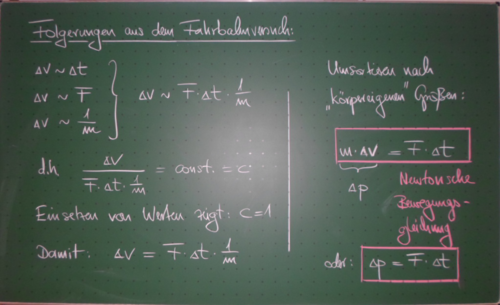 Folgerungen aus dem Fahrbahnversuch:
Δv ~ Δt
Δv ~ F̅
Δv ~ 1/m
Δv ~ F̅ · Δt · 1/m
d.h Δv / (F̅ · Δt · 1/m) = const. = c
Einsetzen von Werten zeigt: c=1
Damit: Δv = F̅ · Δt · 1/m
Umsortieren nach
„körpereigenen" Größen:
m · Δv = F̅ · Δt
Δp
Newtonsche
Bewegungs-
gleichung
oder: Δp = F̅ · Δt